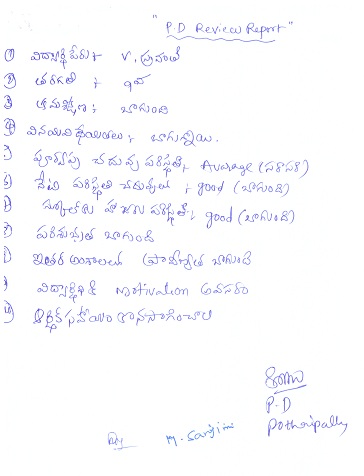 "P.D Review Report"
① విద్యార్థి పేరు :- V. ప్రశాంత్
② తరగతి :- 9వ
③ క్రమశిక్షణ : బాగుంది
④ వినయవిధేయతలు :- బాగున్నాయి.
పూర్వపు చదువు పరిస్థితి :- Average (సరాసరి)
నేటి పరిస్థితి చదువులు : good (బాగుంది)
స్కూలుకు హాజరు పరిస్థితి : good (బాగుంది)
పరిశుభ్రత బాగుంది
ఇతర అంశాలలు ప్రావీణ్యత బాగుంది
విద్యార్థికి motivation అవసరం
ఆర్థిక సహాయం కొనసాగించాలి
P.D
Pothripally
M. Sanjini